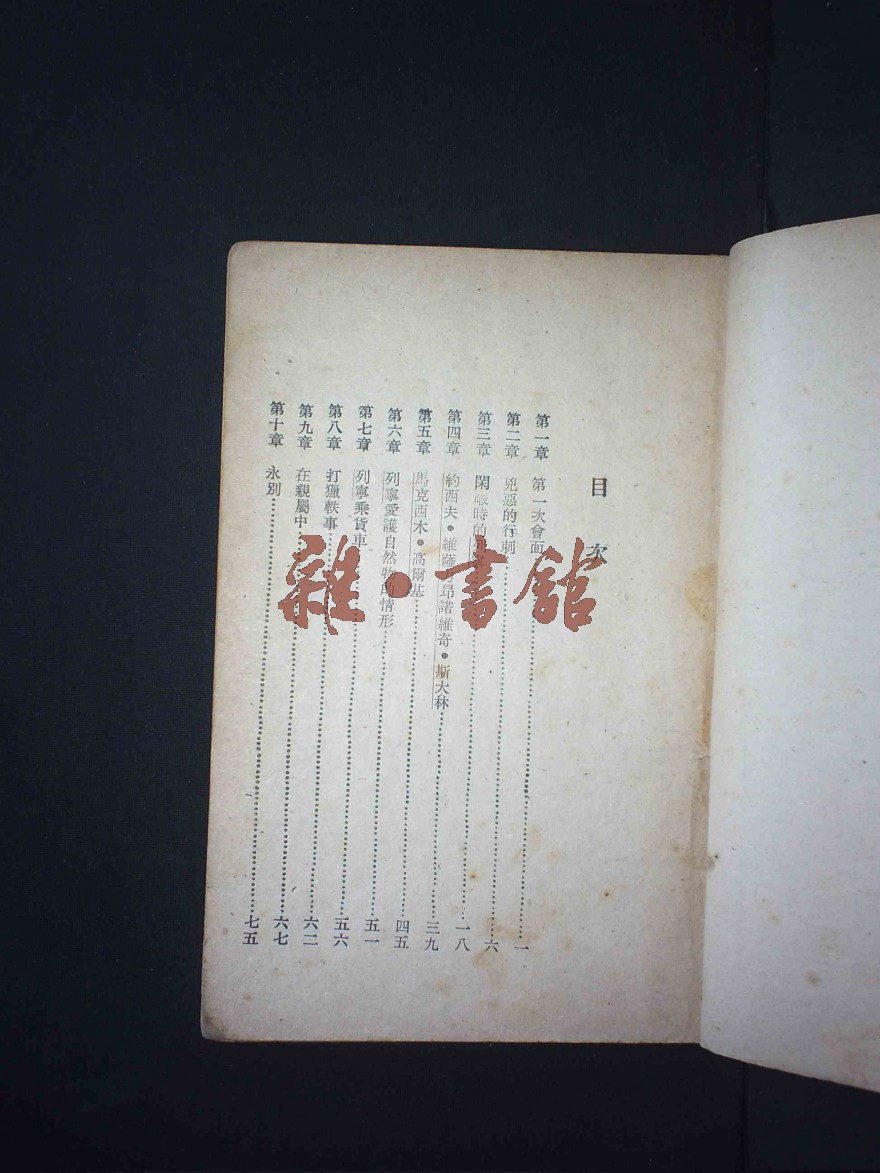 目次
第一章 第一次會面……一
第二章 兇惡的行刺……六
第三章 閑暇時的……一八
第四章 約西夫•維薩 昂諾維奇•斯大林……三九
第五章 馬克西木•高爾基……四五
第六章 列寧愛護自然物的情形……五一
第七章 列寧乘貨車……五六
第八章 打獵軼事……六二
第九章 在親屬中……六七
第十章 永別……七五
雜•書館